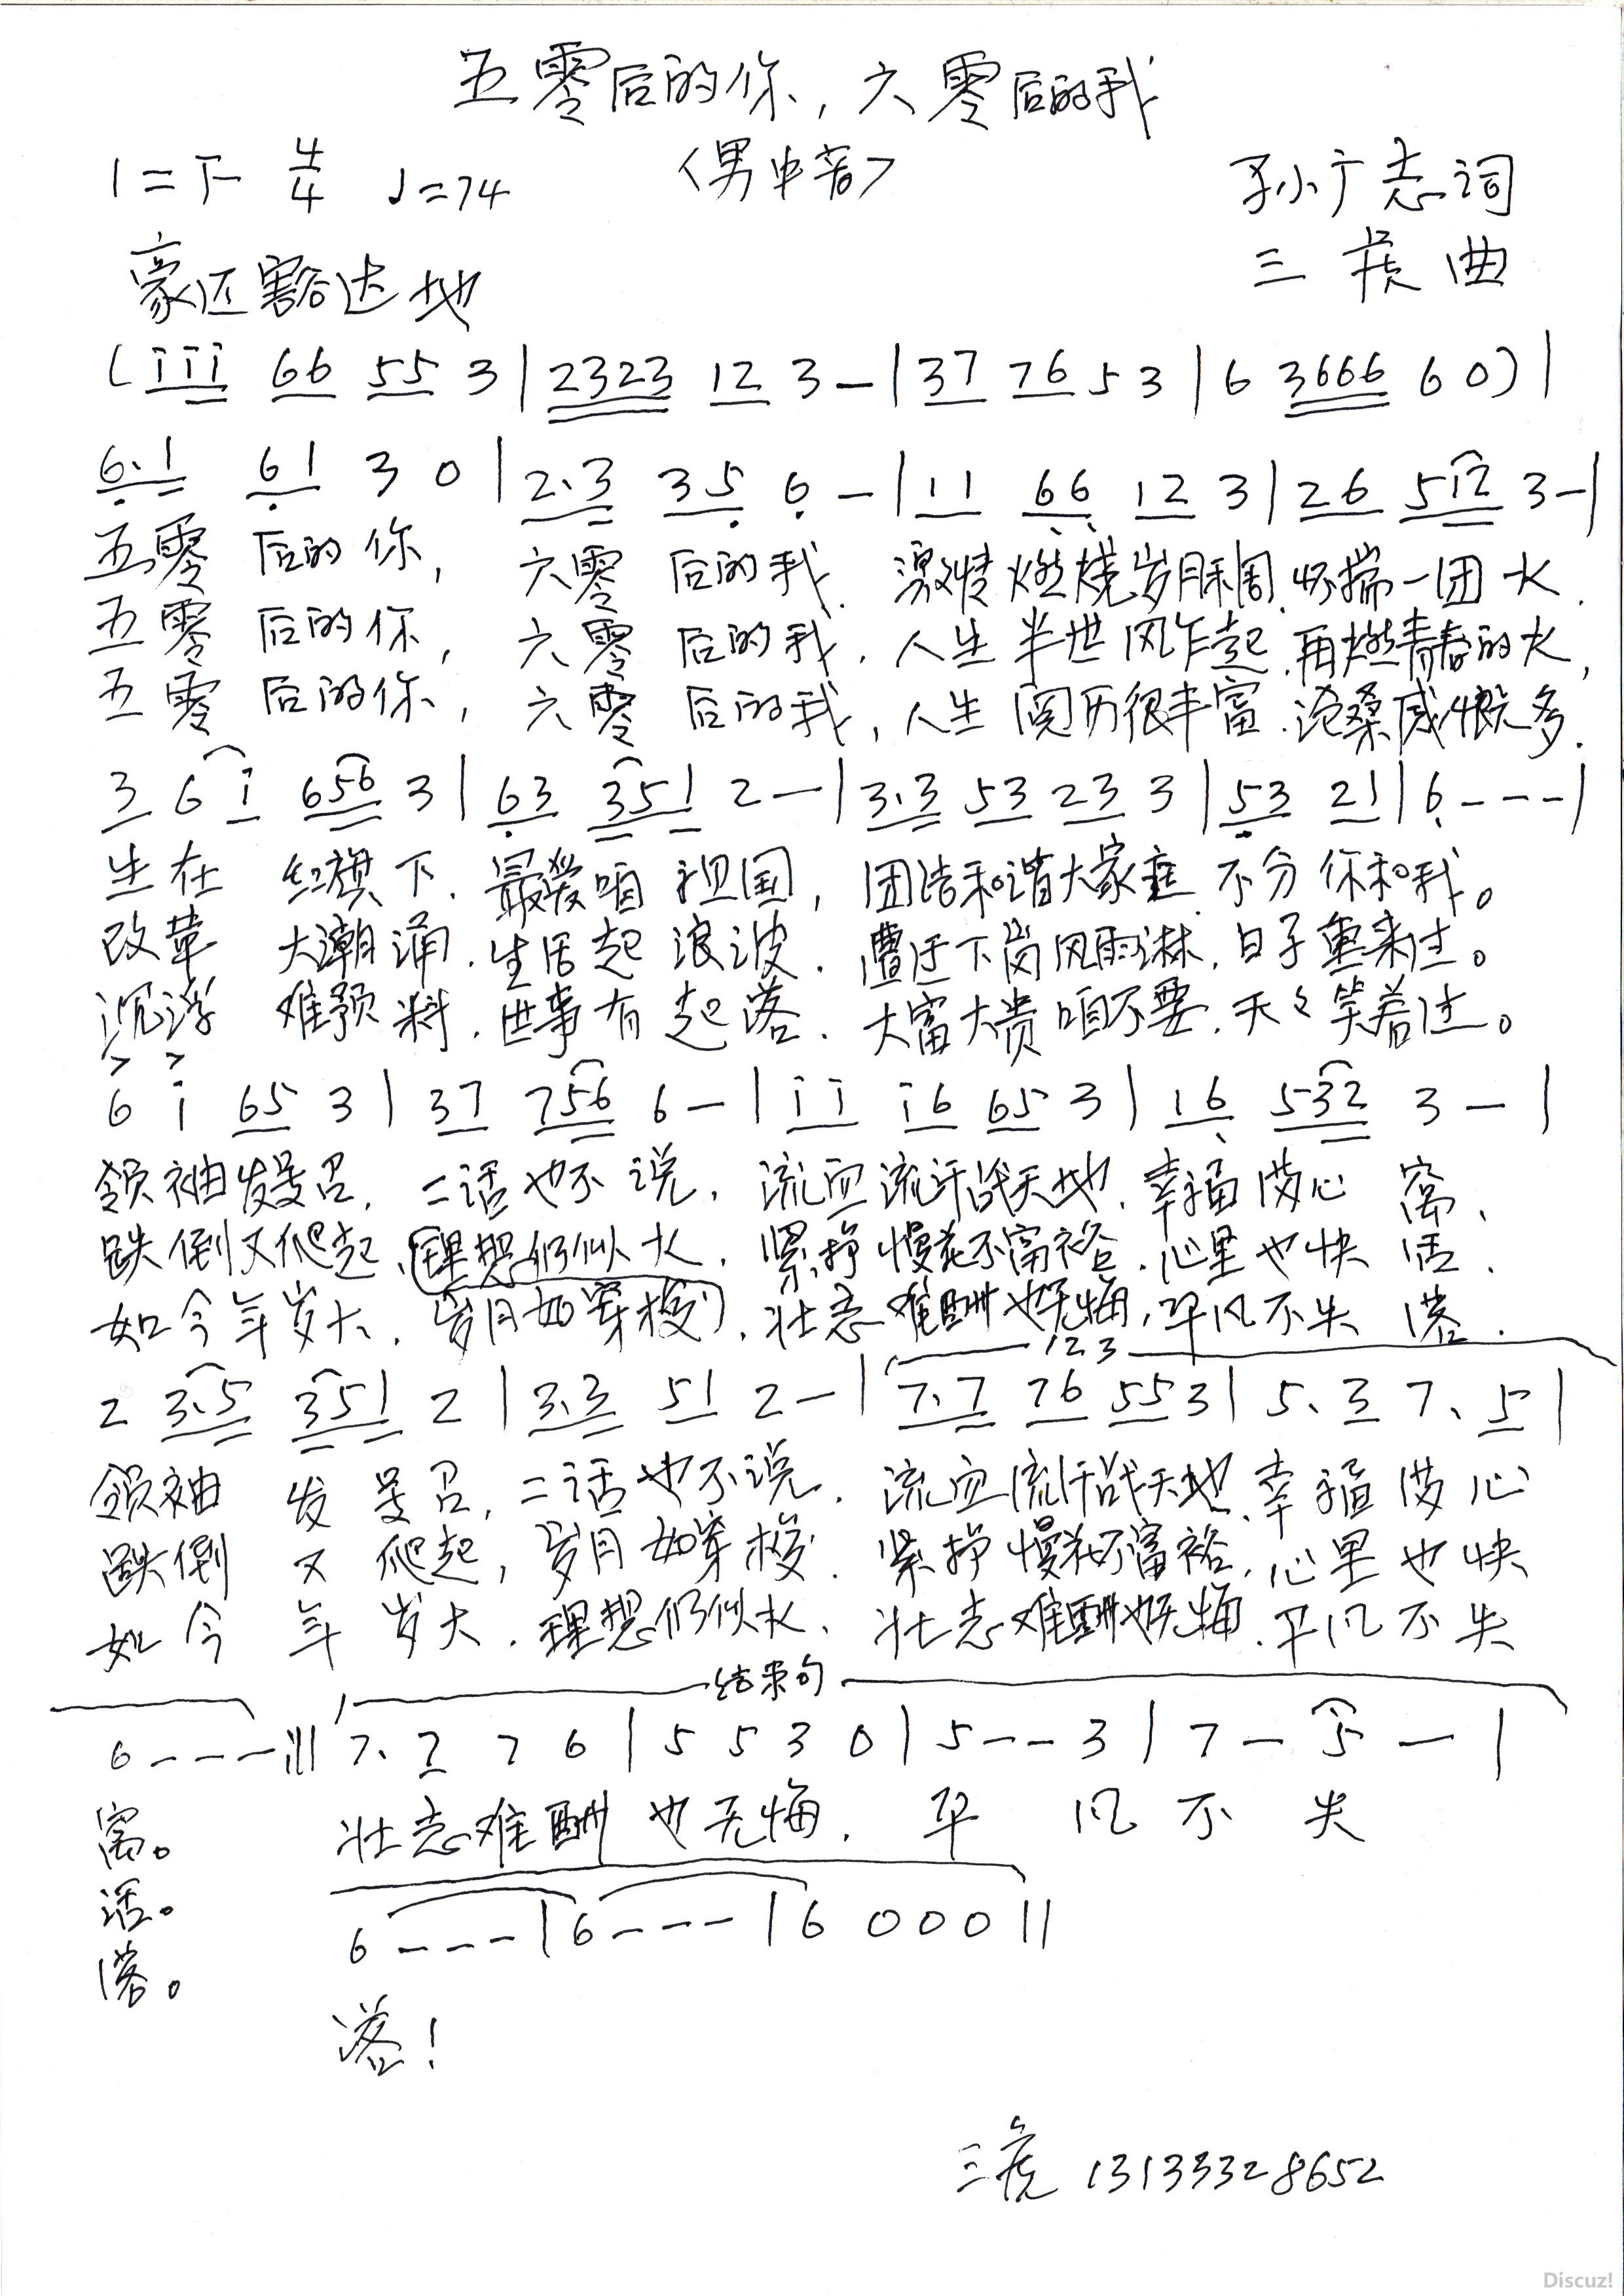 五零后的你，六零后的我
1=F 4/4 ♩=74 〈男中音〉 孙广志词
豪迈豁达地 三虎曲
(i i i 66 55 3 | 2323 12 3 — | 37 76 5 3 | 6 3666 6 0) |
6.1 61 3 0 | 2.3 35 6 — | 11 66 12 3 | 26 512 3 — |
五零 后的你， 六零 后的我. 激情燃烧岁月稠. 怀揣一团火.
五零 后的你， 六零 后的我. 人生半世风乍起. 再燃青春的火,
五零 后的你， 六零 后的我, 人生阅历很丰富. 沧桑感慨多.
3 6 i 656 3 | 63 351 2 — | 3.3 53 23 3 | 53 21 | 6 - - - |
生在 红旗下. 最爱咱祖国, 团结和谐大家庭. 不分你和我。
改革 大潮涌. 生活起浪波. 遭迂下岗风雨淋. 日子重来过。
沉浮 难预料. 世事有起落. 大富大贵咱不要. 天天笑着过。
6 i 65 3 | 37 756 6 — | i i i6 65 3 | 16 532 3 — |
领袖发号召. 二话也不说. 流血流汗战天地. 幸福满心窝.
跌倒又爬起. (理想仍似火. 紧挣慢花不富裕. 心里也快活.
如今年岁大. 岁月如穿梭). 壮志难酬也无悔, 平凡不失落.
123
2 3.5 351 2 | 3.3 51 2 — | 7.7 76 55 3 | 5. 3 7. 5 |
领袖 发号召, 二话也不说. 流血流汗战天地. 幸福满心
跌倒 又爬起, 岁月如穿梭. 紧挣慢花不富裕. 心里也快
如今 年岁大. 理想仍似火. 壮志难酬也无悔. 平凡不失
结束句
6 - - - :|| 7. 7 7 6 | 5 5 3 0 | 5 - - 3 | 7 — 5 — |
窝。 壮志难酬也无悔. 平凡不失
活。
落。
6 - - - | 6 - - - | 6 0 0 0 ||
落!
三虎 13133328652
Discuz!